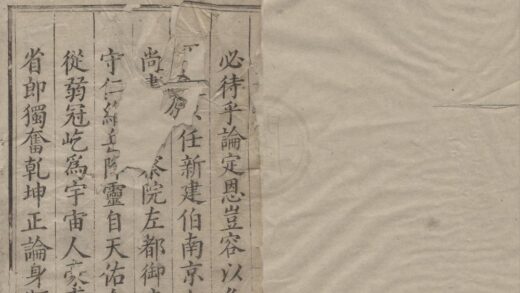 必待乎論定恩豈容以
任新建伯南京
尚書察院左都御
守仁維岳降靈自天佑
從弱冠屹爲宇宙人豪
省郎獨奮乾坤正論身